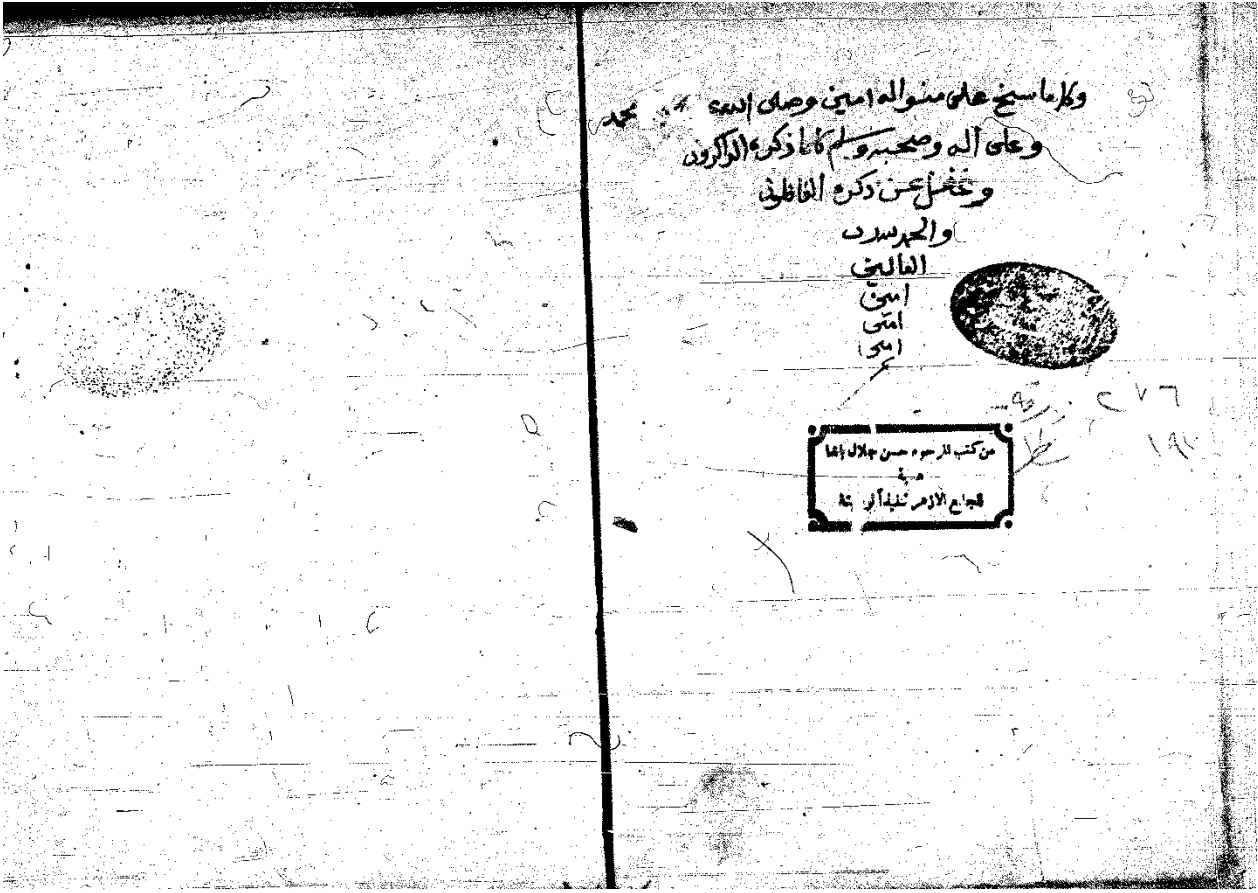 وكل ما نسج على منواله امين وصلى الله محمد
وعلى آله وصحبه وسلم كلما ذكره الذاكرون
وغفل عن ذكره الغافلون
والحمد لله رب
العالمين
امين
امين
امين
٢٧٦ ورقة
من كتب المرحوم حسن جلال باشا
هدية
للجامع الأزهر تنفيذاً